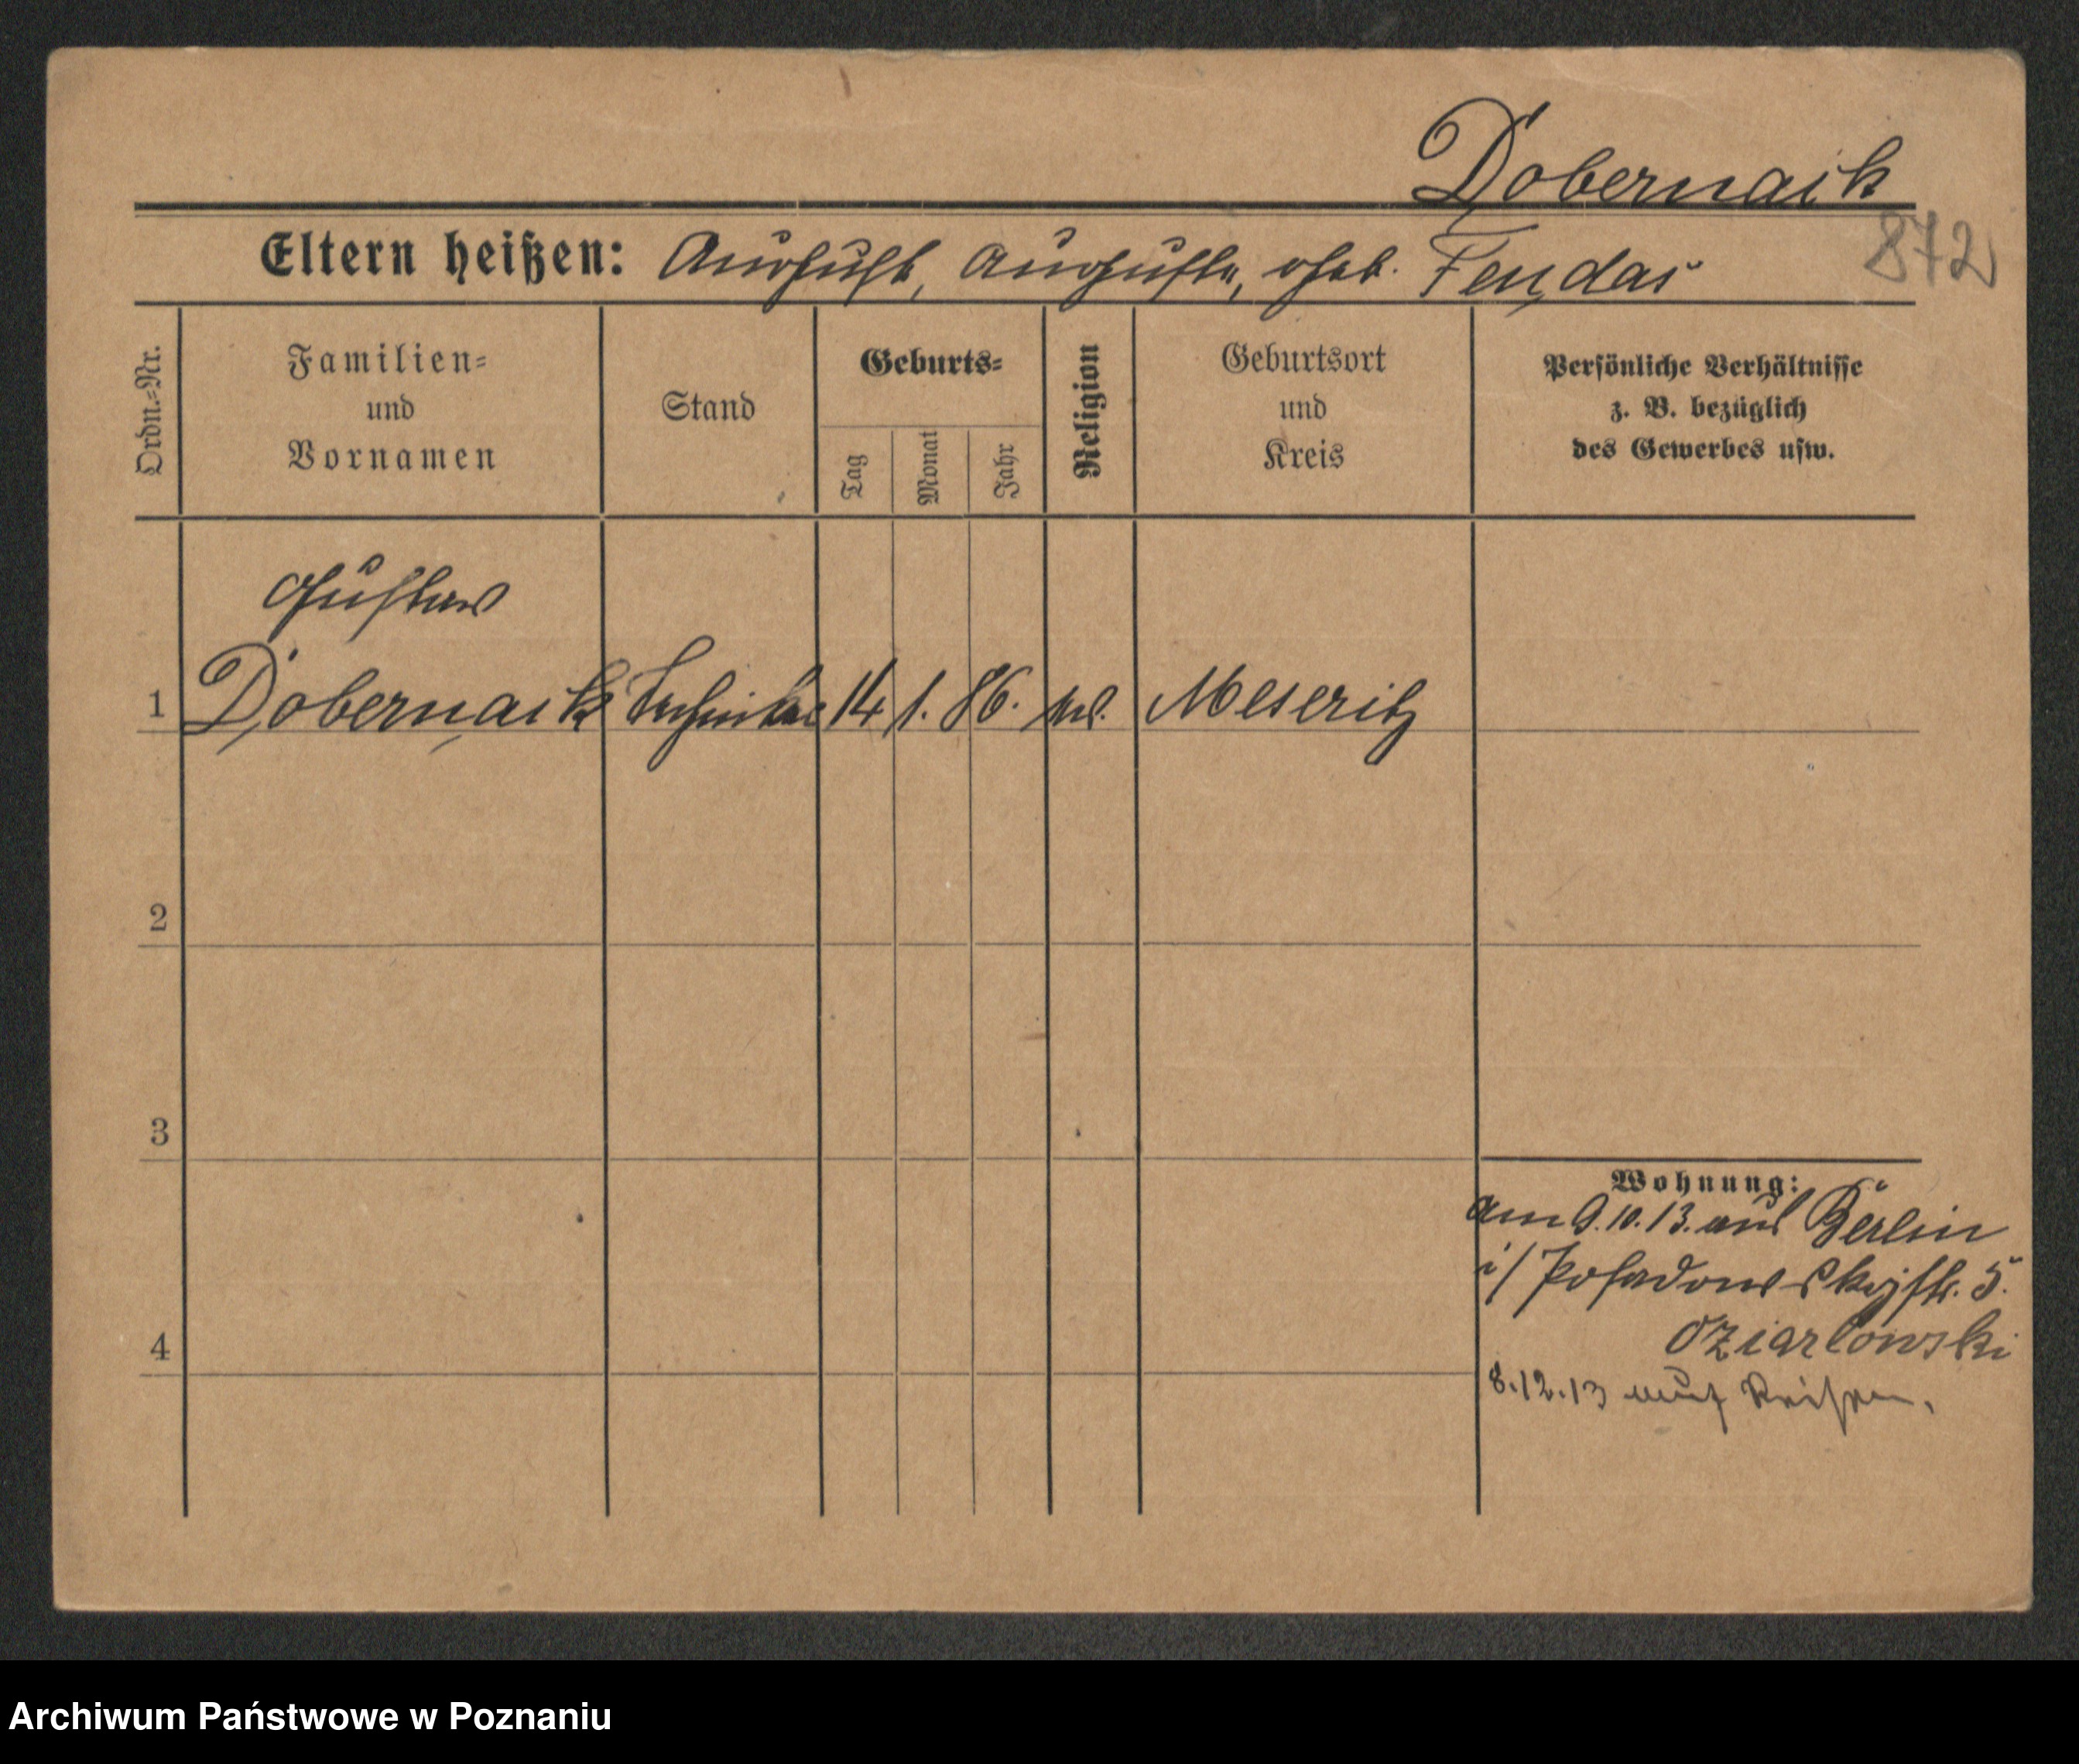 Dobernaik
872
Eltern heißen: August, Auguste, geb. Fendas
Ordn.-Nr.
Familien-
und
Vornamen
Stand
Geburts-
Tag
Monat
Jahr
Religion
Geburtsort
und
Kreis
Persönliche Verhältnisse
z. B. bezüglich
des Gewerbes usw.
Gustav
1 Dobernaik Techniker 14 1. 86. Meseritz
2
3
4
Wohnung:
am 9.10.13. aus Berlin
i/ Posadowskystr. 5.
8.12.13 auf Reisen.
Archiwum Państwowe w Poznaniu